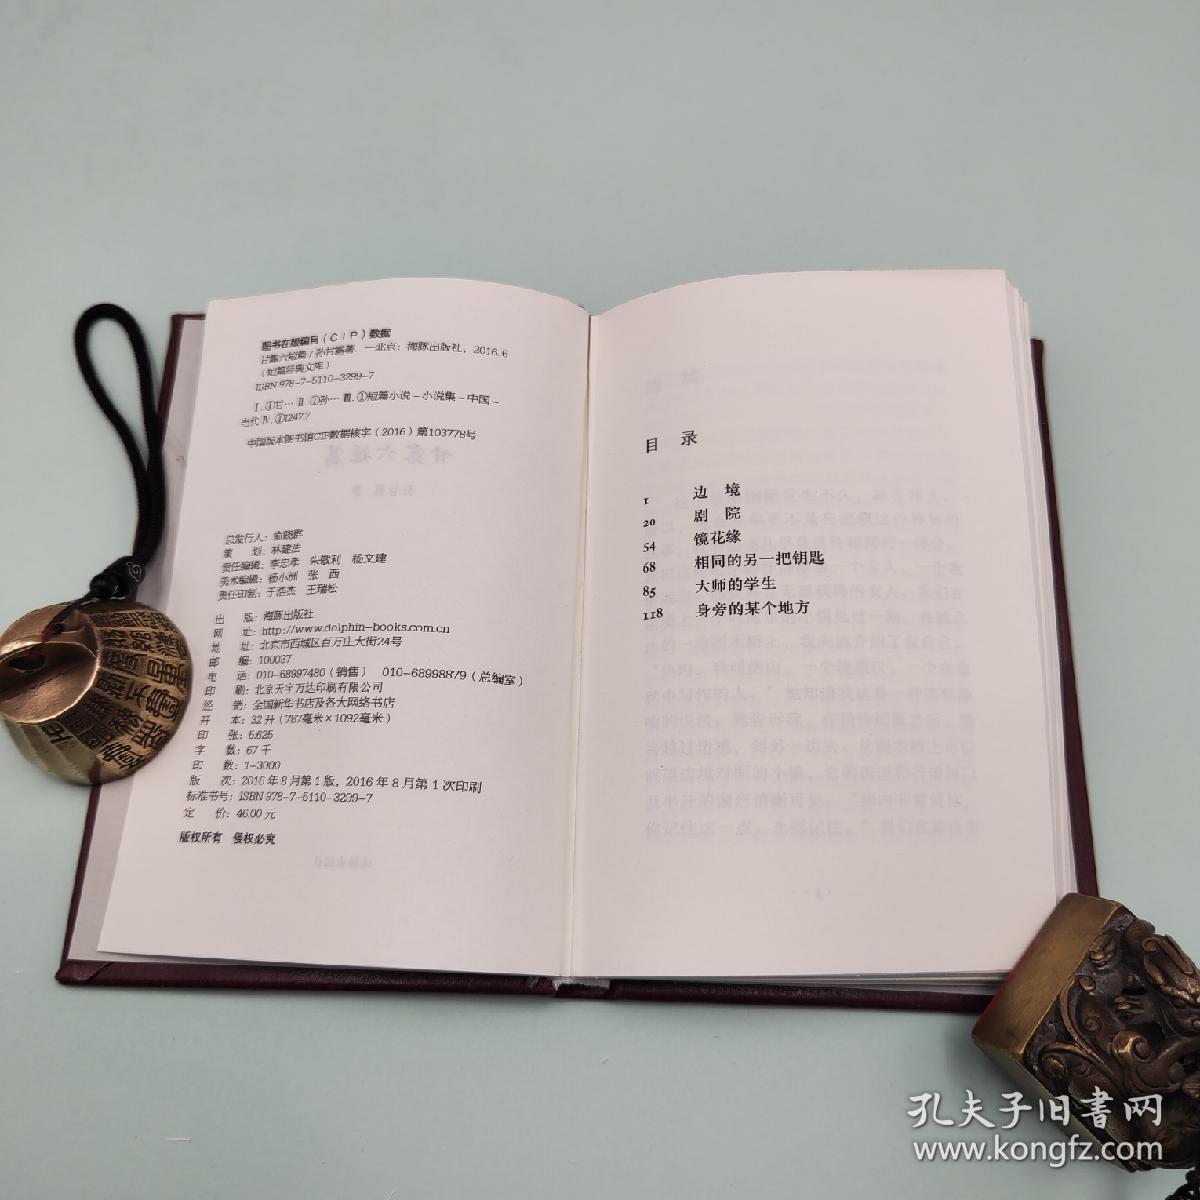 图书在版编目（CIP）数据
甘露六短集/孙甘露著. —北京：海豚出版社，2016.6
（短篇经典文库）
ISBN 978-7-5110-3299-7
Ⅰ.①甘… Ⅱ.①孙… Ⅲ.①短篇小说－小说集－中国－
当代 Ⅳ.①I247.7
中国版本图书馆CIP数据核字（2016）第103778号
总发行人：俞晓群
策　　划：林建法
责任编辑：李忠孝　朱敬利　杨文建
美术编辑：杨小洲　张　西
责任印制：于浩杰　王瑞松
出　　版：海豚出版社
网　　址：http://www.dolphin-books.com.cn
地　　址：北京市西城区百万庄大街24号
邮　　编：100037
电　　话：010-68997480（销售）　010-68998879（总编室）
印　　刷：北京天宇万达印刷有限公司
经　　销：全国新华书店及各大网络书店
开　　本：32开（787毫米×1092毫米）
印　　张：5.625
字　　数：67千
印　　数：1-3000
版　　次：2016年8月第1版，2016年8月第1次印刷
标准书号：ISBN 978-7-5110-3299-7
定　　价：46.00元
版权所有　侵权必究
目 录
1 边 境
20 剧 院
54 镜花缘
68 相同的另一把钥匙
85 大师的学生
118 身旁的某个地方
孔夫子旧书网
www.kongfz.com